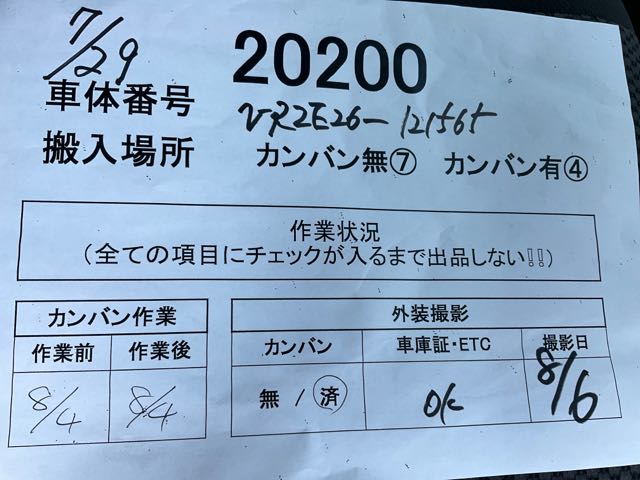 7/29
20200
車体番号
VR2E26-121565
搬入場所
カンバン無⑦ カンバン有④
作業状況
(全ての項目にチェックが入るまで出品しない!!)
カンバン作業
作業前 作業後
8/4 8/4
外装撮影
カンバン 車庫証・ETC 撮影日
無 / 済 OK 8/6